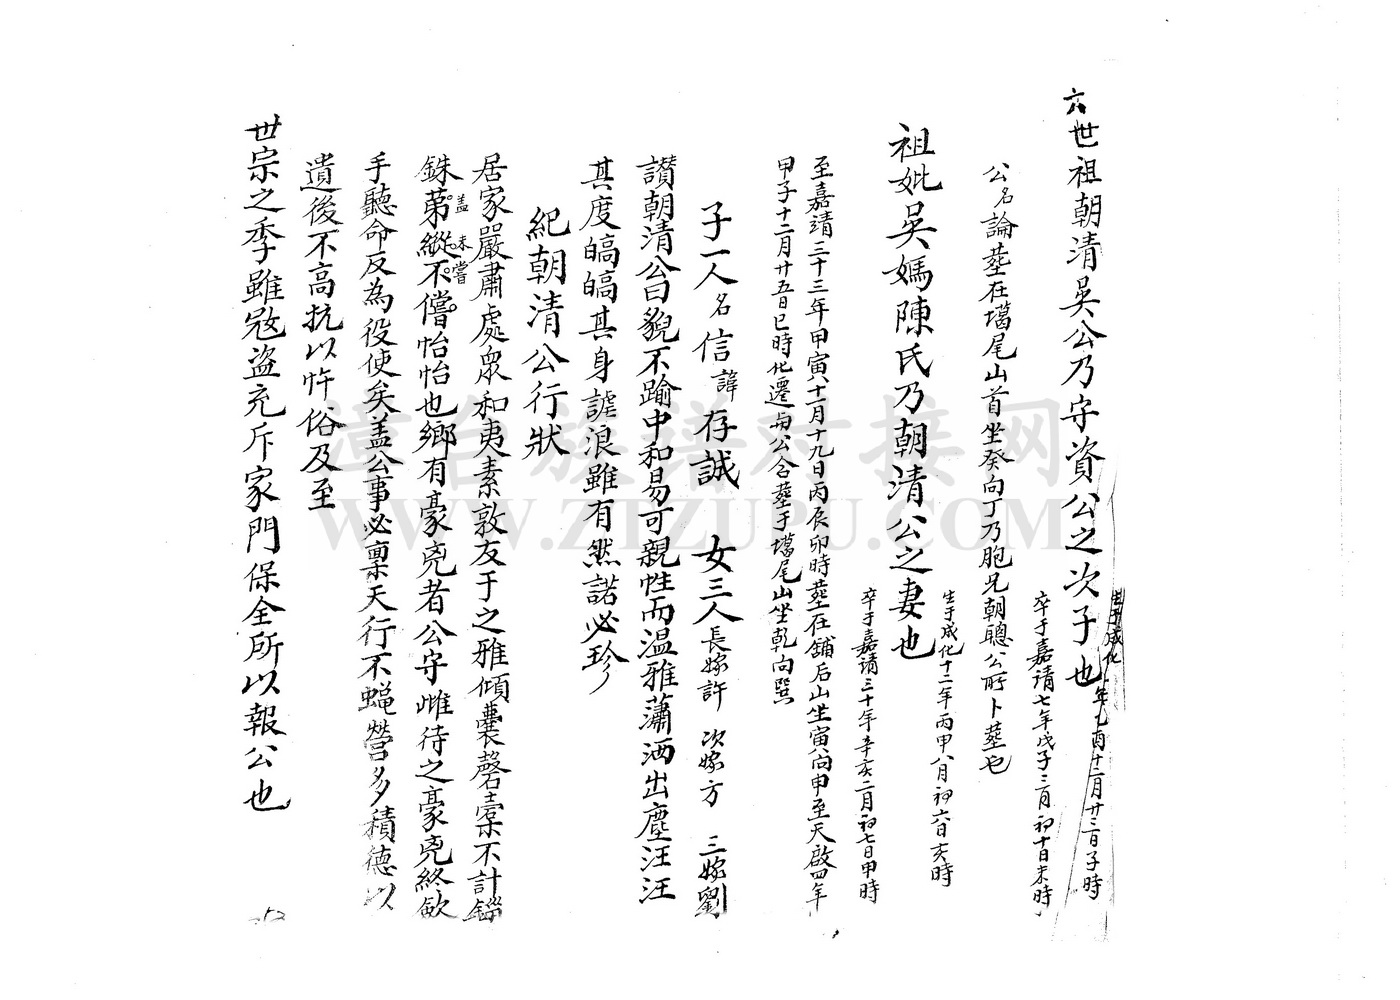 六世祖朝清吳公乃守資公之次子也
生于成化 年乙酉十二月廿三日子時
卒于嘉靖七年戊子三月初十日未時
公名論塟在墦尾山首坐癸向丁乃胞兄朝聰公所卜塟也
祖妣吳媽陳氏乃朝清公之妻也
生于成化十二年丙申八月初六日亥時
卒于嘉靖三十年辛亥二月初七日申時
至嘉靖三十三年甲寅十一月十九日丙辰卯時塟在舖后山坐寅向申至天啟四年
甲子十二月廿五日巳時化遷與公合塟于墦尾山坐乾向巽
子一人名信諱存誠 女三人長嫁許 次嫁方 三嫁劉
讚朝清公曰貌不踰中和易可親性而温雅蕭洒出塵汪汪
其度皜皜其身謔浪雖有然諾必珍
紀朝清公行狀
居家嚴肅處衆和夷素敦友于之雅傾囊罄橐不計錙
銖苐縱不儅怡怡也鄉有豪兇者公守雌待之豪兇終歛
盖未嘗
手聽命反為役使矣盖公事必禀天行不蝇營多積德以
遺後不高抗以忤俗及至
世宗之季雖寇盗充斥家門保全所以報公也
漳台族谱对接网
WWW.ZTZUPU.COM